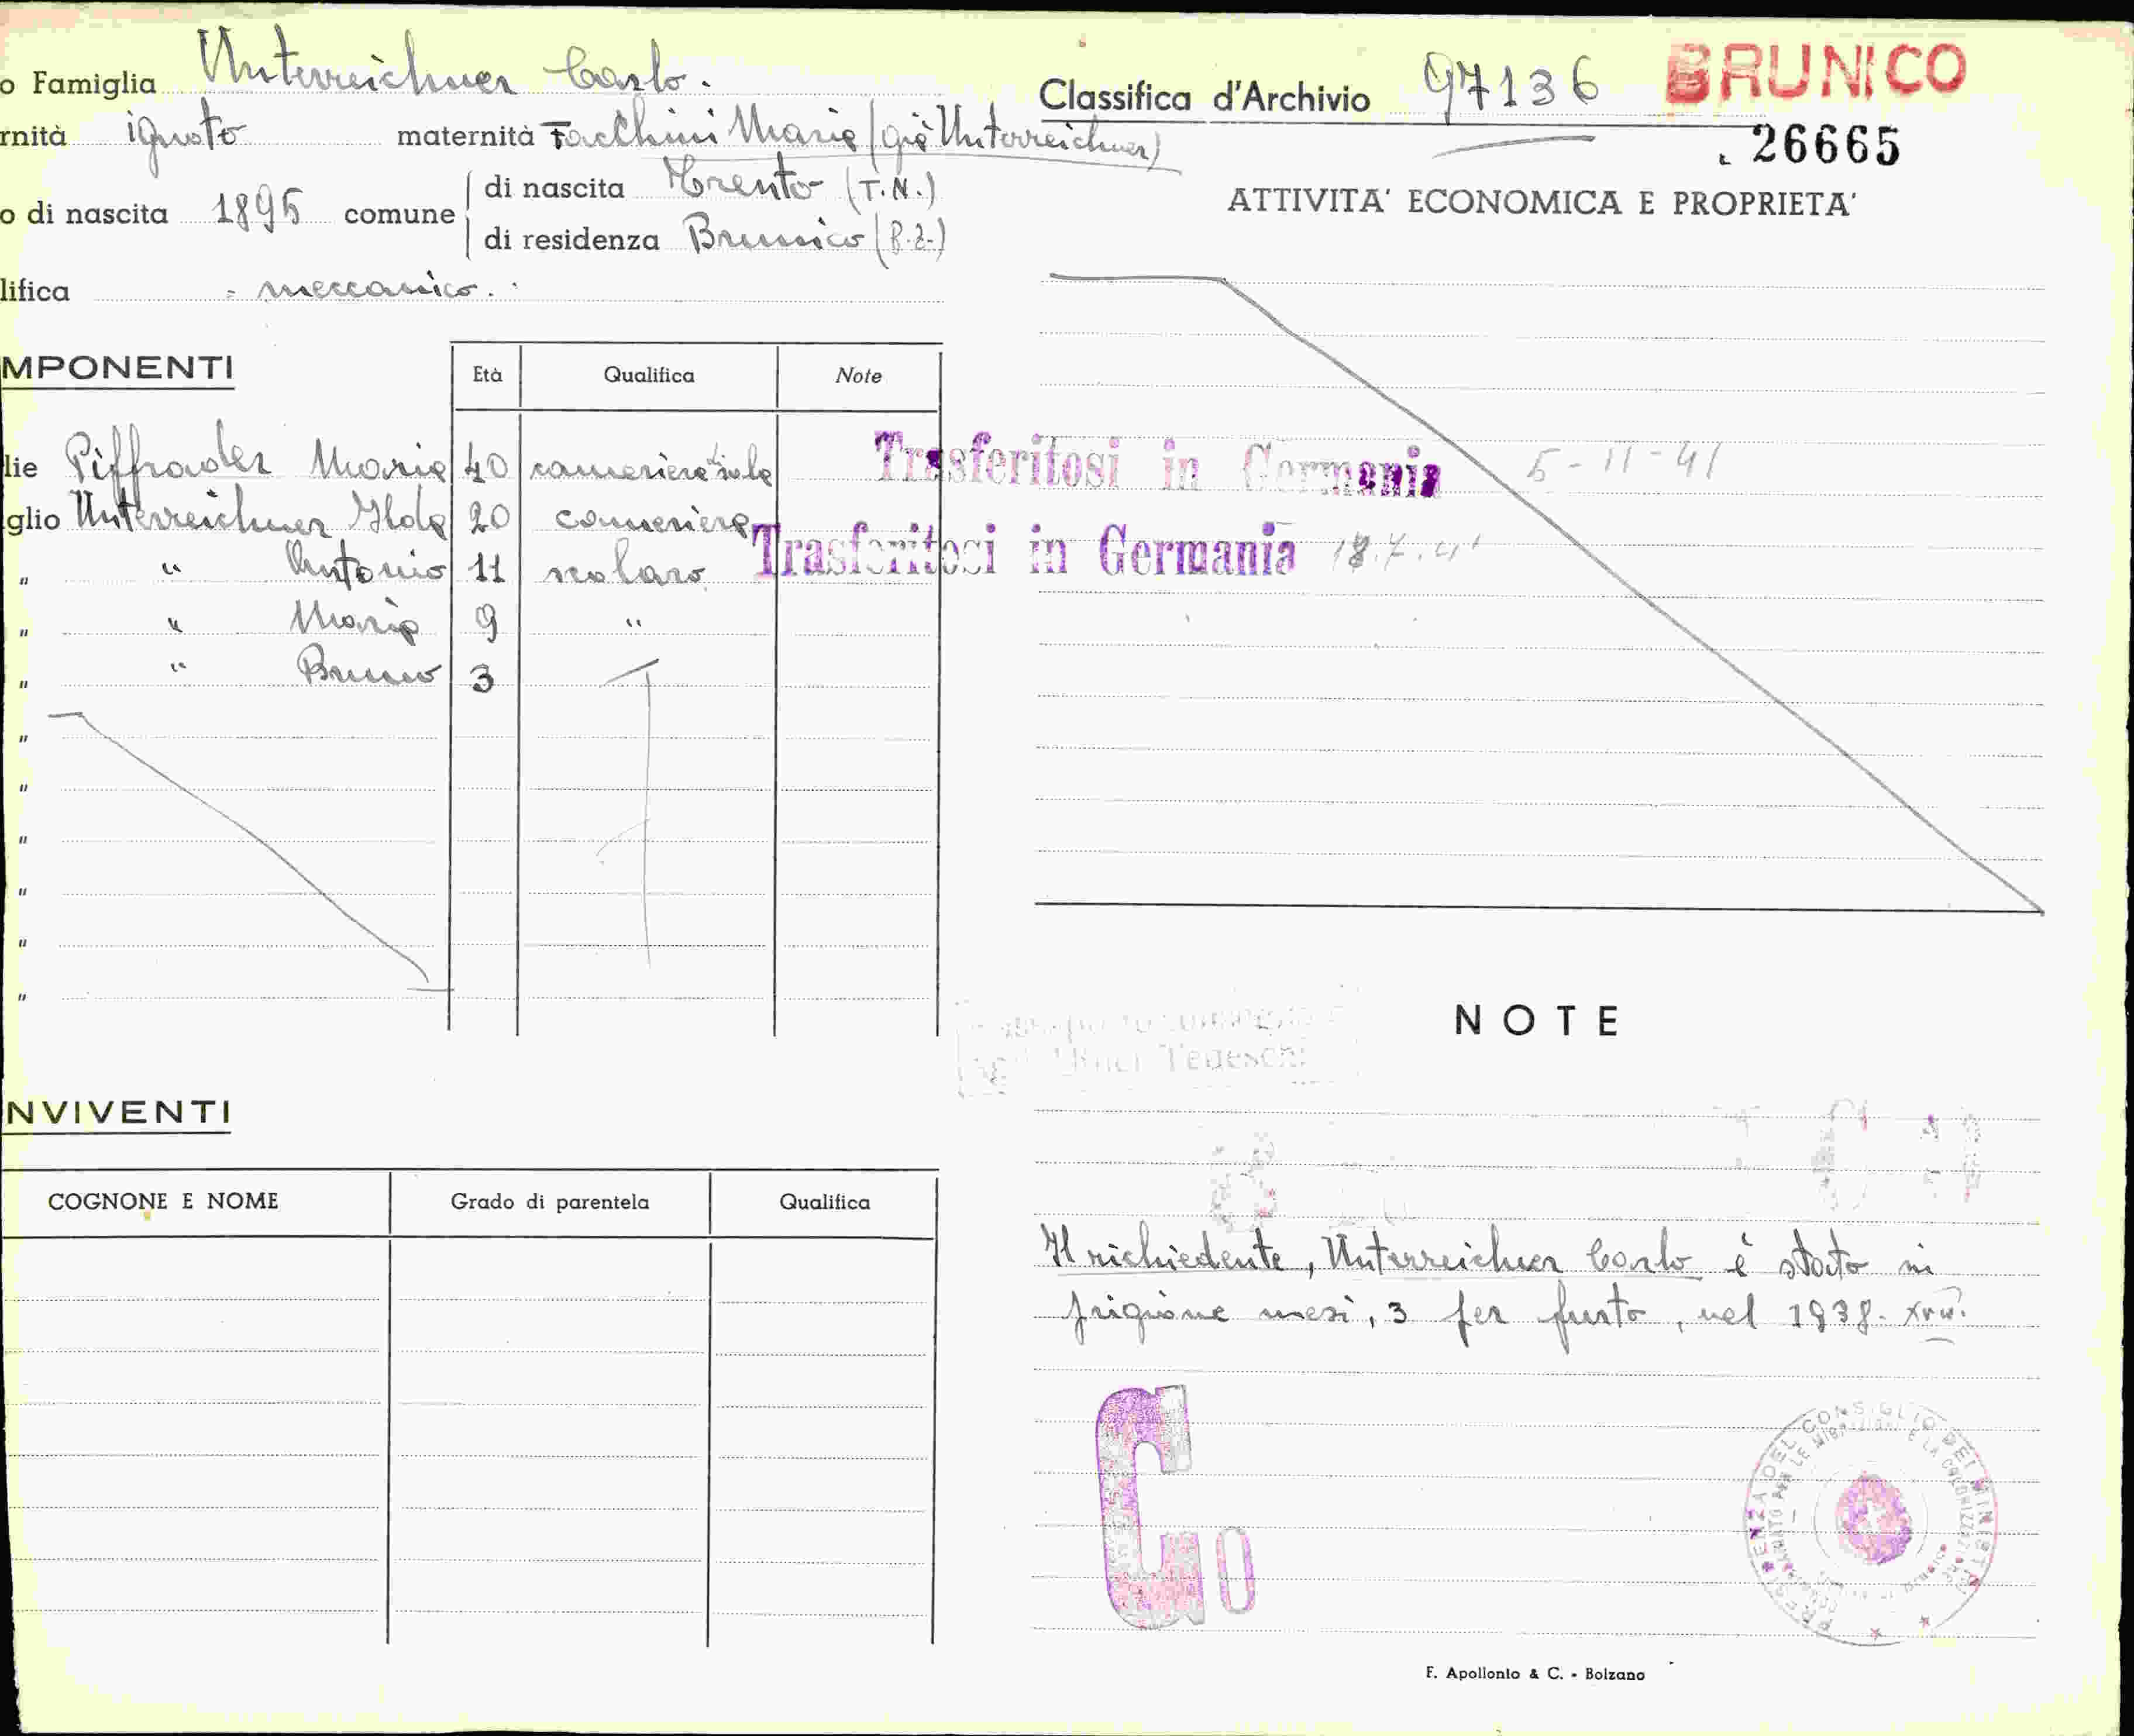 o Famiglia Unterreichner Carlo.
rnità ignoto maternità Facchini Maria (già Unterreichner)
o di nascita 1895 comune di nascita Trento (T.N.)
di residenza Brunico (B.Z.)
lifica = meccanico.
MPONENTI
Età Qualifica Note
lie Piffrader Maria 40 cameriera
glio Unterreichner Ilda 20 cameriera
" " Antonio 11 scolaro
" " Maria 9 "
" " Bruno 3
"
"
"
"
"
"
NVIVENTI
COGNONE E NOME Grado di parentela Qualifica
Classifica d'Archivio 97136 BRUNICO
26665
ATTIVITA' ECONOMICA E PROPRIETA'
Trasferitosi in Germania 5-11-41
Trasferitosi in Germania 18.7.41
Tedeschi
NOTE
Il richiedente, Unterreichner Carlo è stato in
prigione mesi, 3 per furto, nel 1938. XVII.
G0
PRESIDENZA DEL CONSIGLIO DEI MINISTRI
F. Apollonio & C. - Bolzano